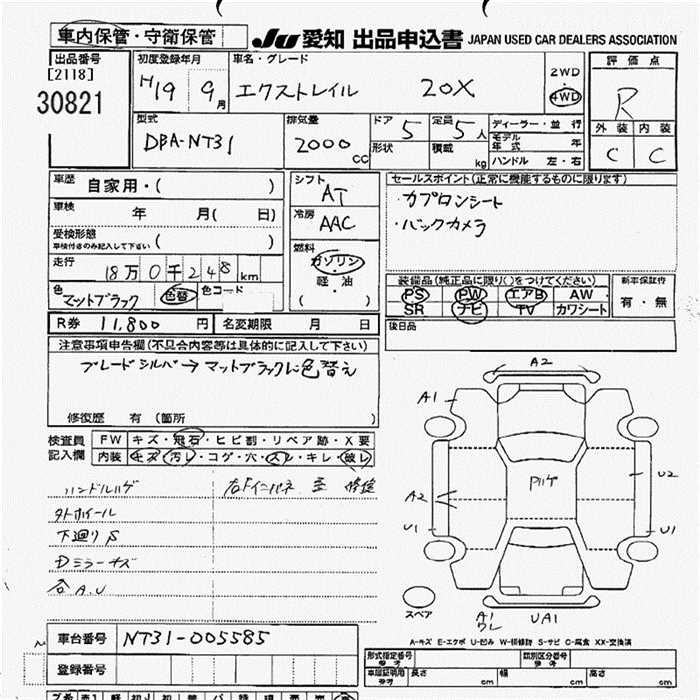 車内保管・守衛保管
JU 愛知 出品申込書 JAPAN USED CAR DEALERS ASSOCIATION
出品番号
[2118]
30821
初度登録年月
H19 9月
車名・グレード
エクストレイル 20X
2WD
4WD
評価点
R
外装 内装
C C
型式
DBA-NT31
排気量
2000 CC
ドア 5
形状
定員 5人
積載 kg
ディーラー・並行
モデル年式 年
ハンドル 左・右
車歴 自家用・( )
車検 年 月( 日)
受検形態
車検付きのみ記入して下さい ( )
走行 18万0千248km
色 マットブラック 色替 色コード
シフト AT
冷房 AAC
燃料
ガソリン
軽・油
( )
セールスポイント(正常に機能するものに限ります)
・カプロンシート
・バックカメラ
装備品(純正品に限り()をつけてください)
PS PW エアB AW
SR ナビ TV カワシート
新車保証付
有・無
後日品
R券 11,800円 名変期限 月 日
注意事項申告欄(不具合内容等は具体的に記入して下さい)
ブレードシルバー→マットブラックに色替え
修復歴 有(箇所 )
検査員記入欄
FW キズ・飛石・ヒビ割・リペア跡・X要
内装 キズ・汚レ・コゲ・穴・スレ・キレ・破レ
ハンドルハゲ
タトホイール
下廻りS
Dミラーキズ
各A.U
A2
A1
Pルーフ
U2
A2
U1
U1
スペア
A1
UA1
A-キズ E-エクボ U-凹み W-補修跡 S-サビ C-腐食 XX-交換済
車台番号 NT31-005585
登録番号
形式指定番号 参考
類別区分番号 参考
車庫証明用 参考 長さ cm 幅 cm 高さ cm